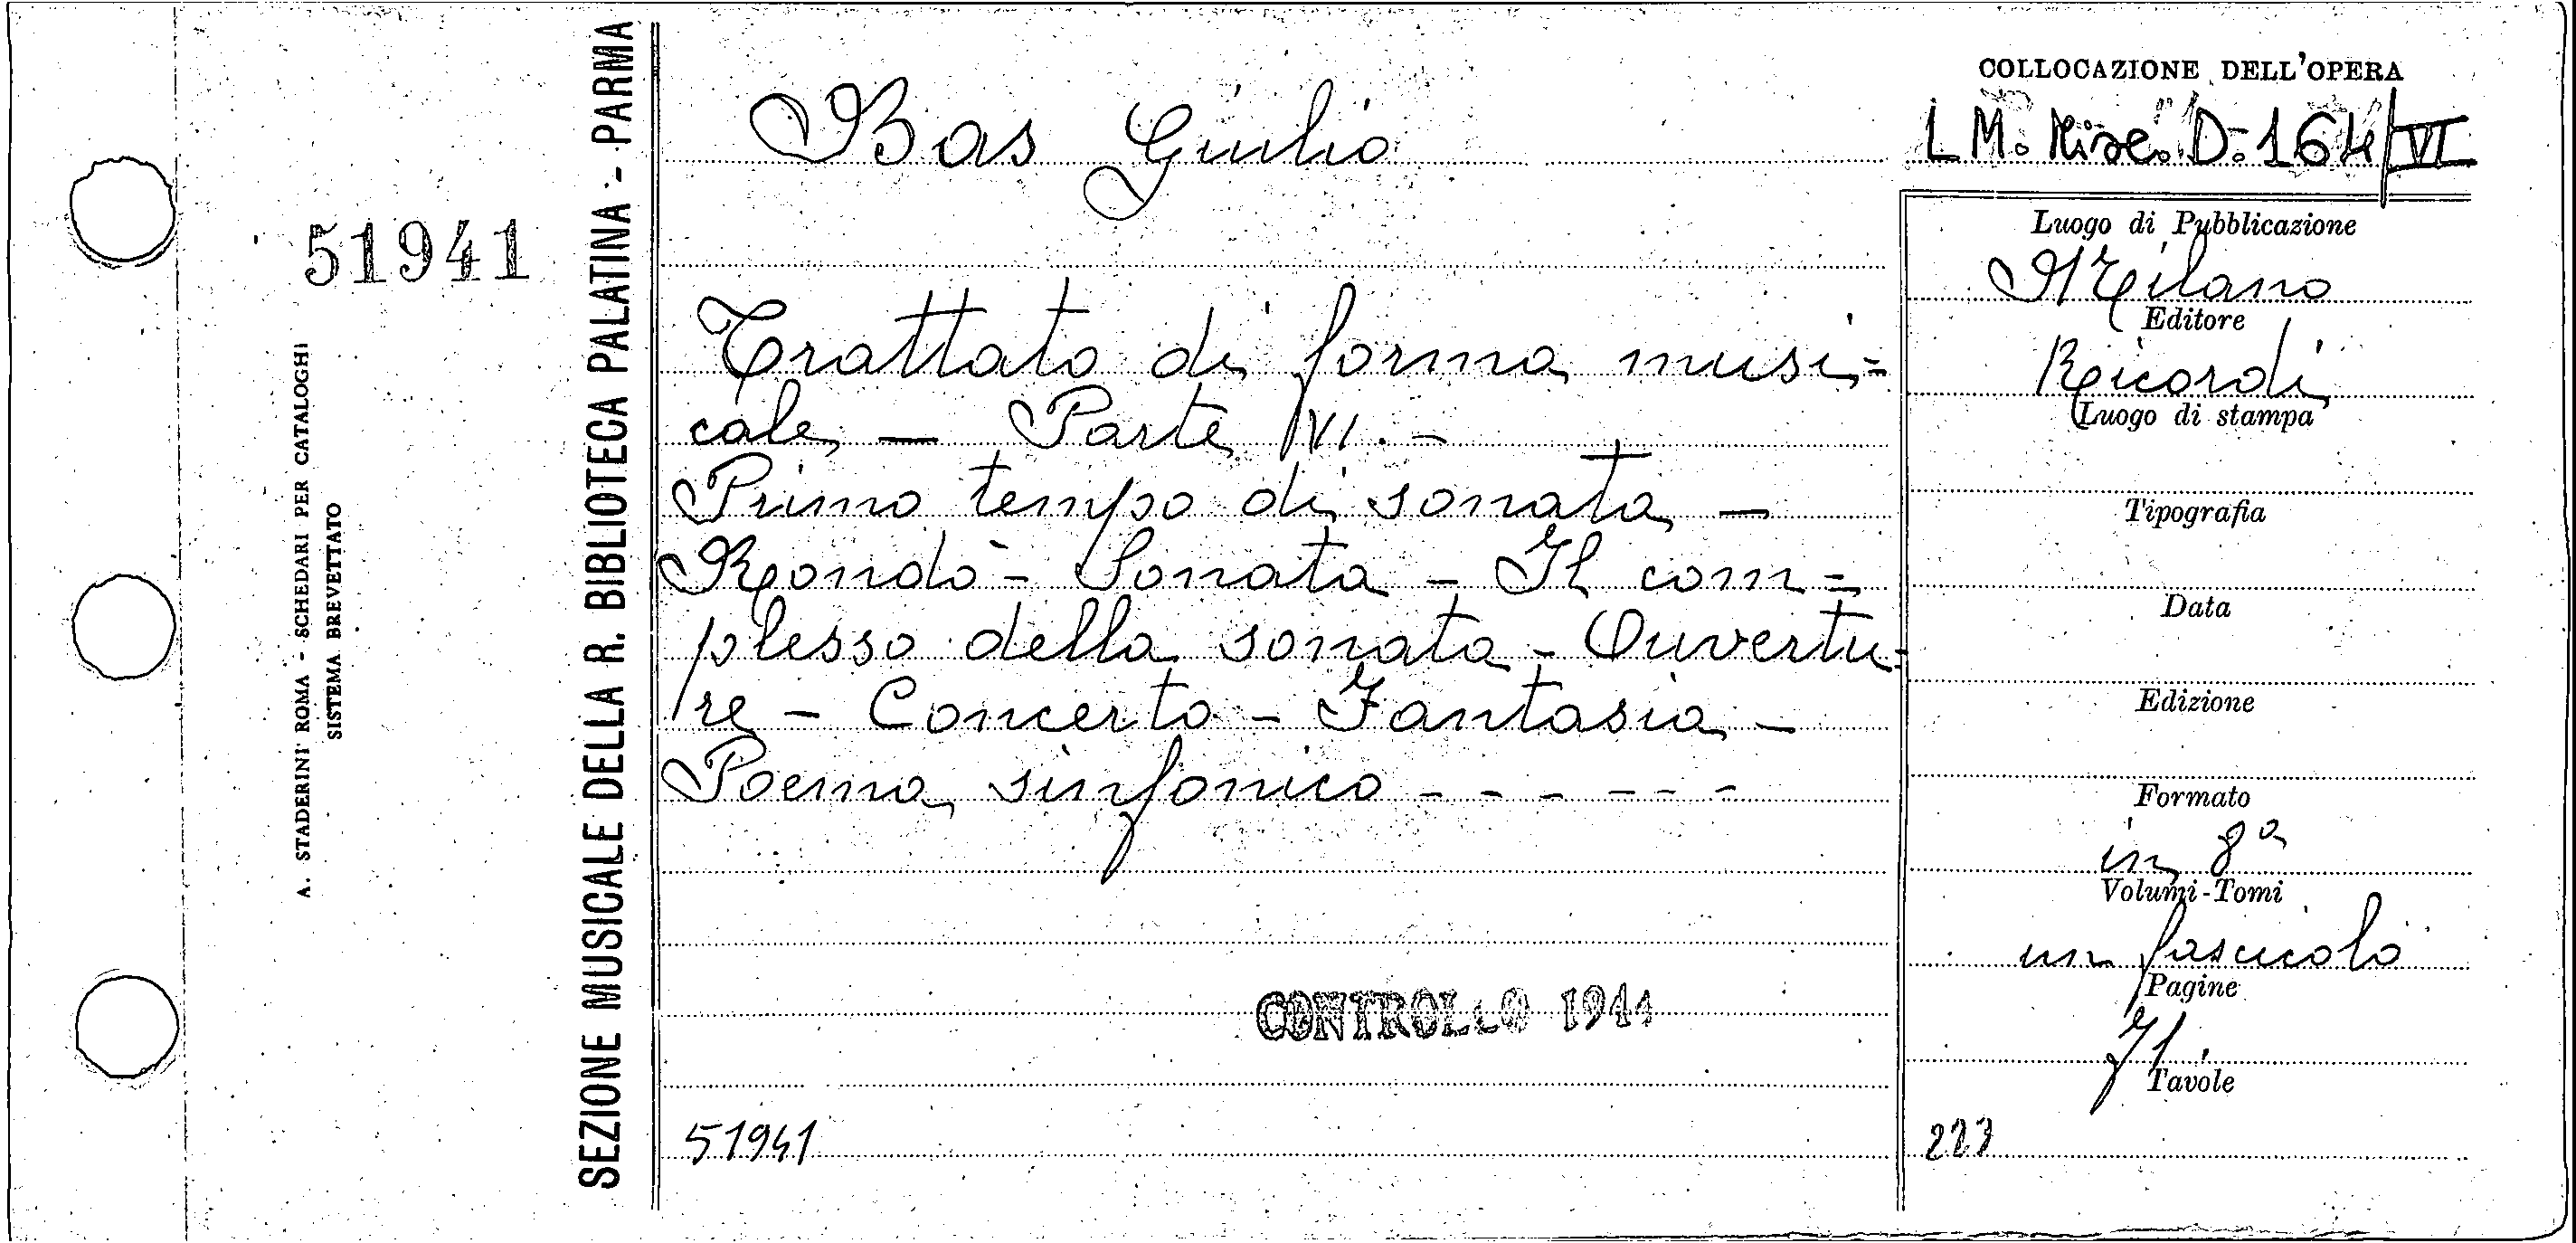 51941
A. STADERINI ROMA - SCHEDARI PER CATALOGHI
SISTEMA BREVETTATO
SEZIONE MUSICALE DELLA R. BIBLIOTECA PALATINA - PARMA
Bas Giulio
Trattato di forma musi=
cale - Parte VI. -
Primo tempo di sonata -
Rondò - Sonata - Il com=
plesso della sonata - Ouvertu=
re - Concerto - Fantasia -
Poema sinfonico - - - - - -
CONTROLLO 1944
51941
COLLOCAZIONE DELL'OPERA
L M. Misc. D. 164/VI
Luogo di Pubblicazione
Milano
Editore
Ricordi
Luogo di stampa
Tipografia
Data
Edizione
Formato
in 8º
Volumi-Tomi
un fascicolo
Pagine
71.
Tavole